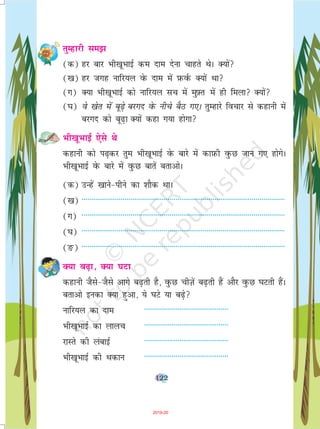 तुम्हारी समझ
(क) हर बार भीखूभाई कम दाम देना चाहते थे। क्यों?
(ख) हर जगह नारियल के दाम में फ़र्क क्यों था?
(ग) क्या भीखूभाई को नारियल सच में मुफ़्त में ही मिला? क्यों?
(घ) वे खेत में बूढ़े बरगद के नीचे बैठ गए। तुम्हारे विचार से कहानी में
बरगद को बूढ़ा क्यों कहा गया होगा?
भीखूभाई ऐसे थे
कहानी को पढ़कर तुम भीखूभाई के बारे में काफ़ी कुछ जान गए होगे।
भीखूभाई के बारे में कुछ बातें बताओ।
(क) उन्हें खाने-पीने का शौक था।
(ख)
(ग)
(घ)
(ङ)
क्या बढ़ा, क्या घटा
कहानी जैसे-जैसे आगे बढ़ती है, कुछ चीज़ें बढ़ती हैं और कुछ घटती हैं।
बताओ इनका क्या हुआ, ये घटे या बढ़े?
नारियल का दाम
भीखूभाई का लालच
रास्ते की लंबाई
भीखूभाई की थकान
122
2019-20
© NCERT
not to be republished